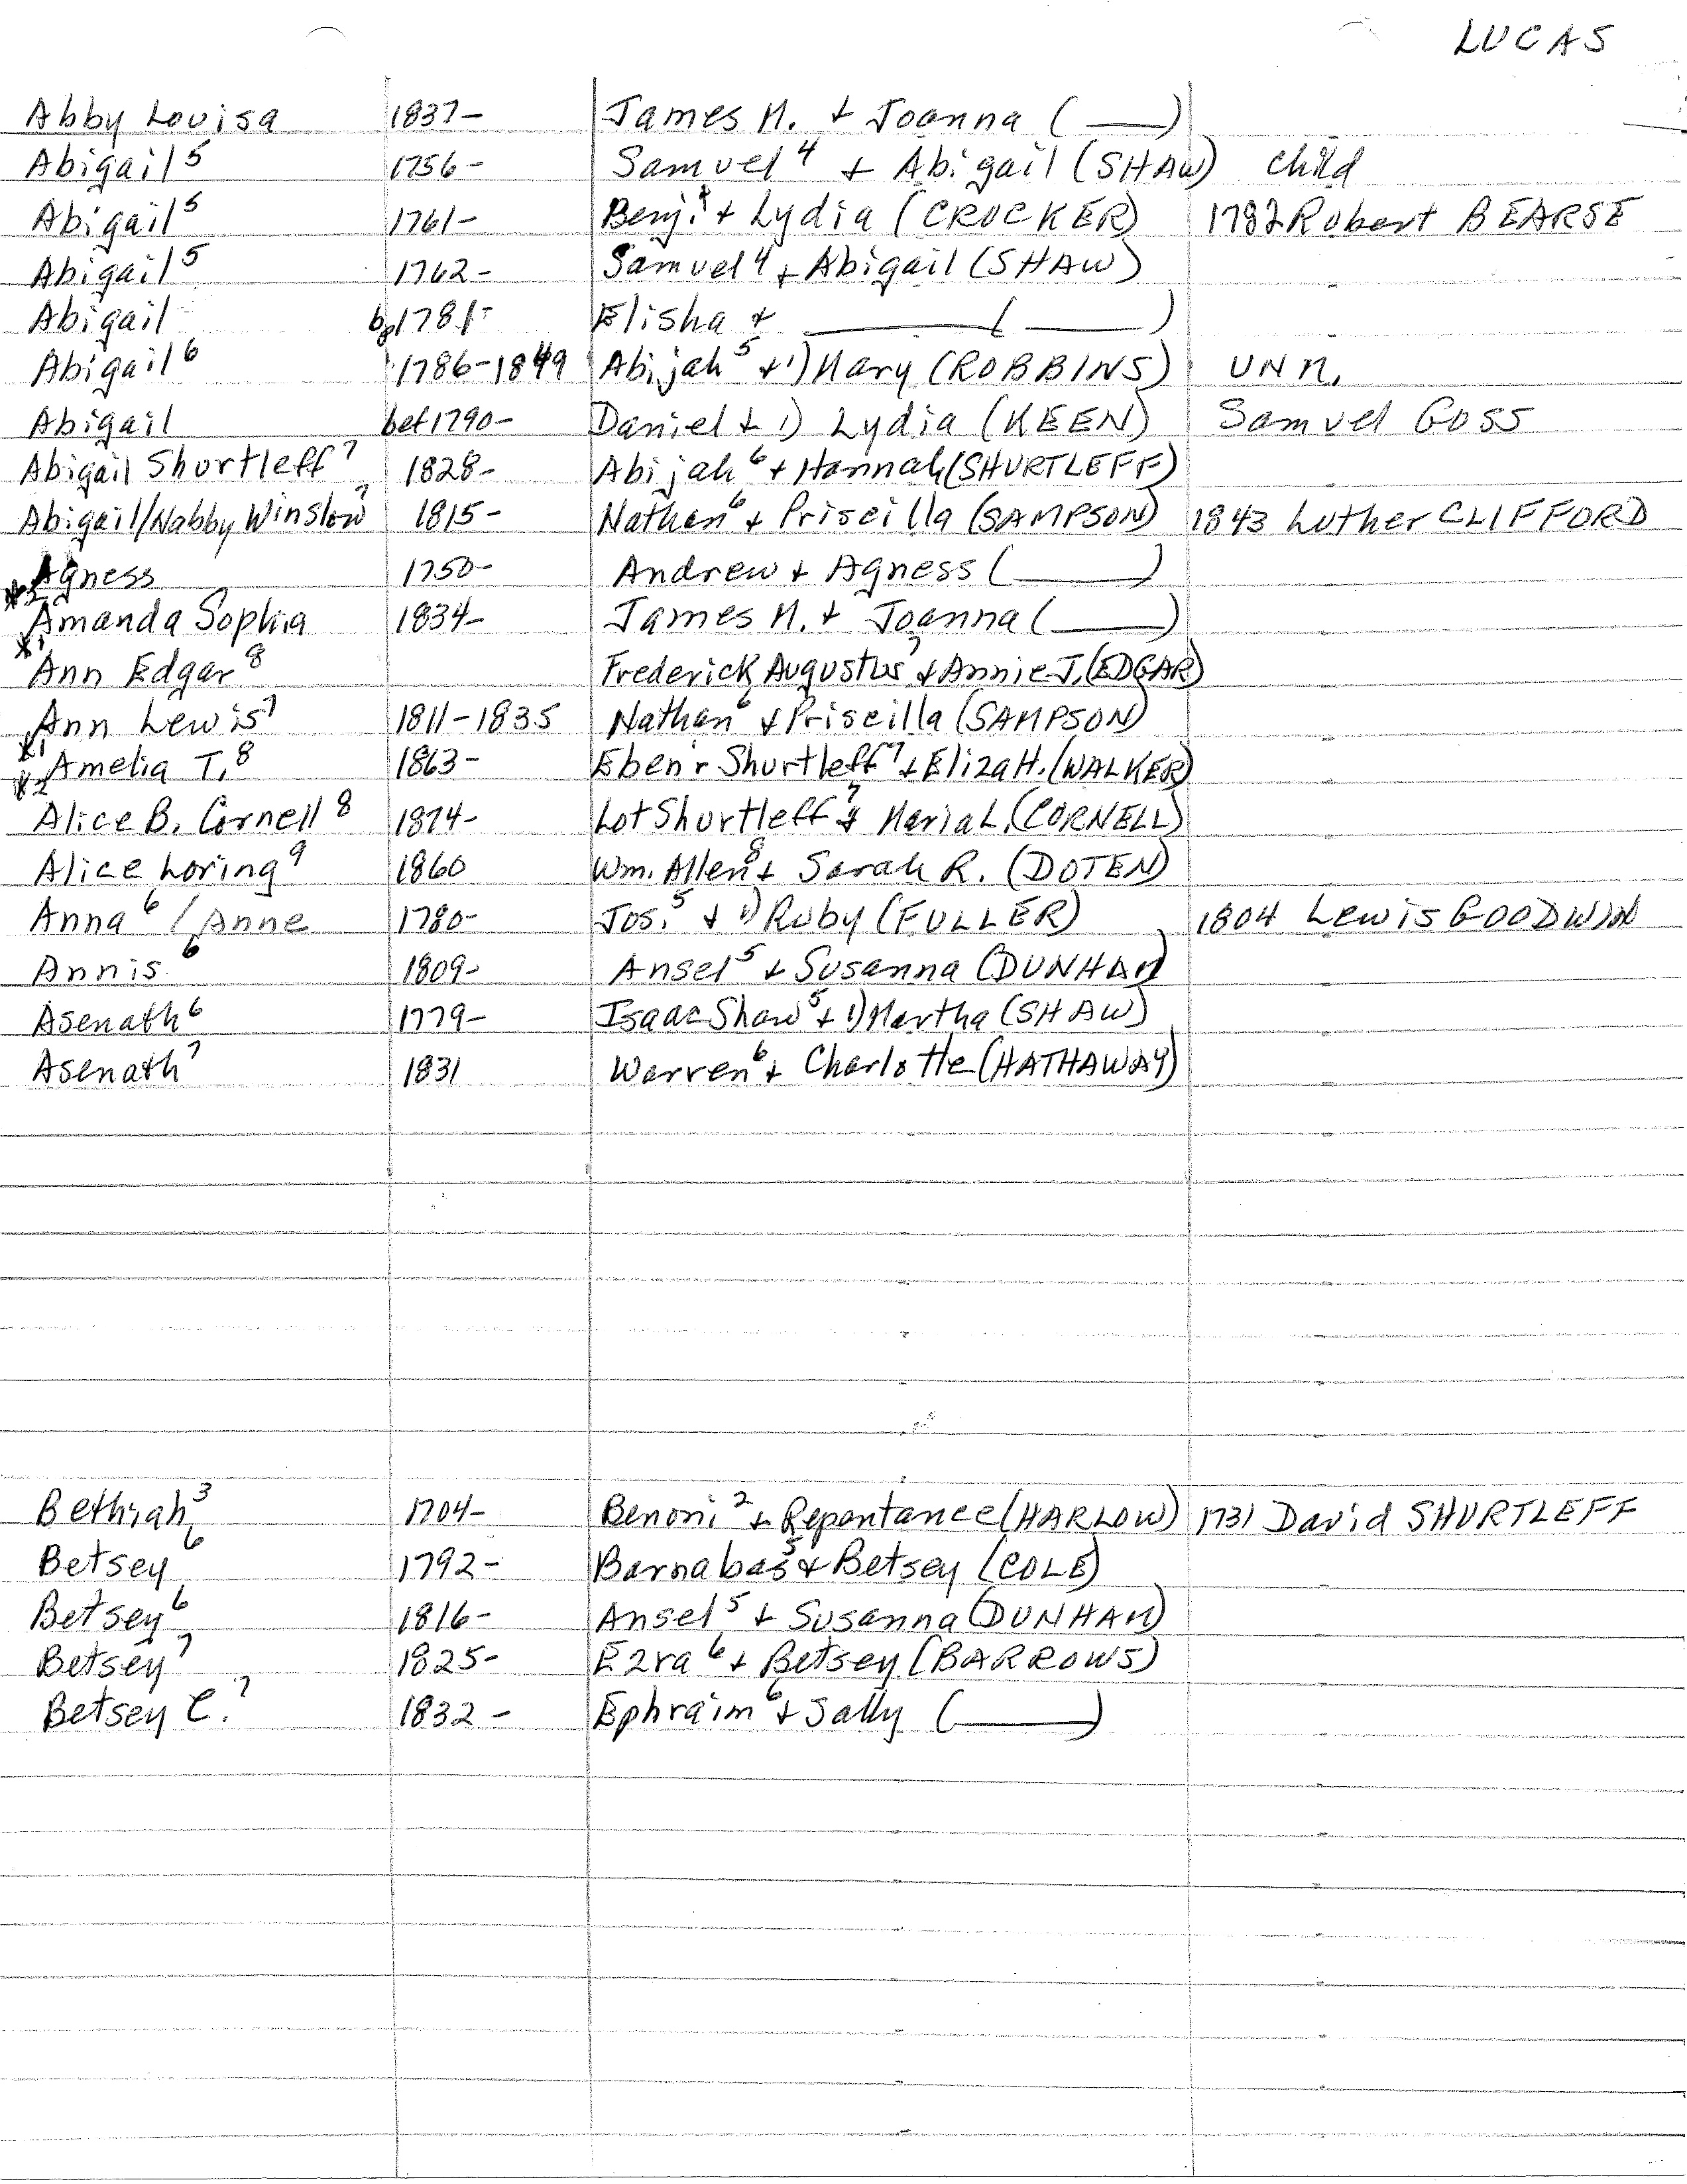 LUCAS
Abby Louisa 1837- James H. + Joanna ( ___ )
Abigail⁵ 1756- Samuel⁴ + Abigail (SHAW) child
Abigail⁵ 1761- Benj.⁴ + Lydia (CROCKER) 1782 Robert BEARSE
Abigail⁵ 1762- Samuel⁴ + Abigail (SHAW)
Abigail bp1781- Elisha + ______ ( ___ )
Abigail⁶ 1786-1849 Abijah⁵ + 1) Mary (ROBBINS) UNM.
Abigail bef1790- Daniel + 1) Lydia (KEEN) Samuel GOSS
Abigail Shurtleff⁷ 1828- Abijah⁶ + Hannah (SHURTLEFF)
Abigail/Nabby Winslow⁷ 1815- Nathan⁶ + Priscilla (SAMPSON) 1843 Luther CLIFFORD
Agness 1750- Andrew + Agness ( ___ )
*2 Amanda Sophia 1834- James H. + Joanna ( ___ )
*1 Ann Edgar⁸ Frederick Augustus⁷ + Annie J. (EDGAR)
Ann Lewis⁷ 1811-1835 Nathan⁶ + Priscilla (SAMPSON)
*1 Amelia T.⁸ 1863- Eben'r Shurtleff⁷ + Eliza H. (WALKER)
*2 Alice B. Cornell⁸ 1874- Lot Shurtleff⁷ + Maria L. (CORNELL)
Alice Loring⁹ 1860 Wm. Allen⁸ + Sarah R. (DOTEN)
Anna⁶ / Anne 1780- Jos.⁵ + 1) Ruby (FULLER) 1804 Lewis GOODWIN
Annis⁶ 1809- Ansel⁵ + Susanna (DUNHAM)
Asenath⁶ 1779- Isaac Shaw⁵ + 1) Martha (SHAW)
Asenath⁷ 1831 Warren⁶ + Charlotte (HATHAWAY)
Bethiah³ 1704- Benoni² + Repentance (HARLOW) 1731 David SHURTLEFF
Betsey⁶ 1792- Barnabas⁵ + Betsey (COLE)
Betsey⁶ 1816- Ansel⁵ + Susanna (DUNHAM)
Betsey⁷ 1825- Ezra⁶ + Betsey (BARROWS)
Betsey C.⁷ 1832- Ephraim⁶ + Sally ( ___ )